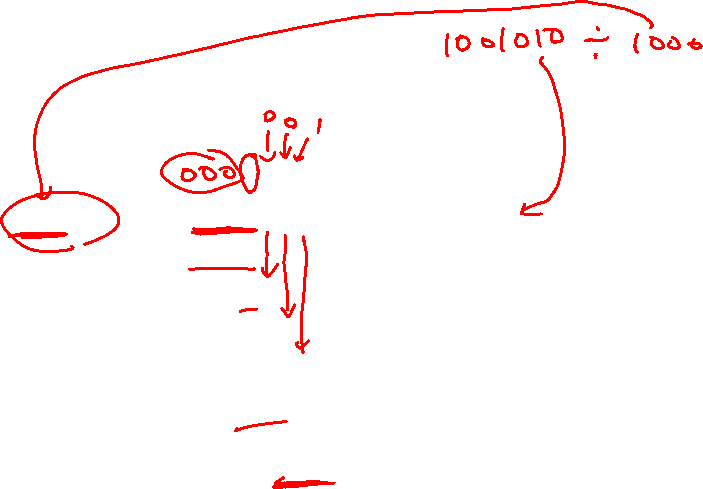 1001010 ÷ 1000
0 0 1
000